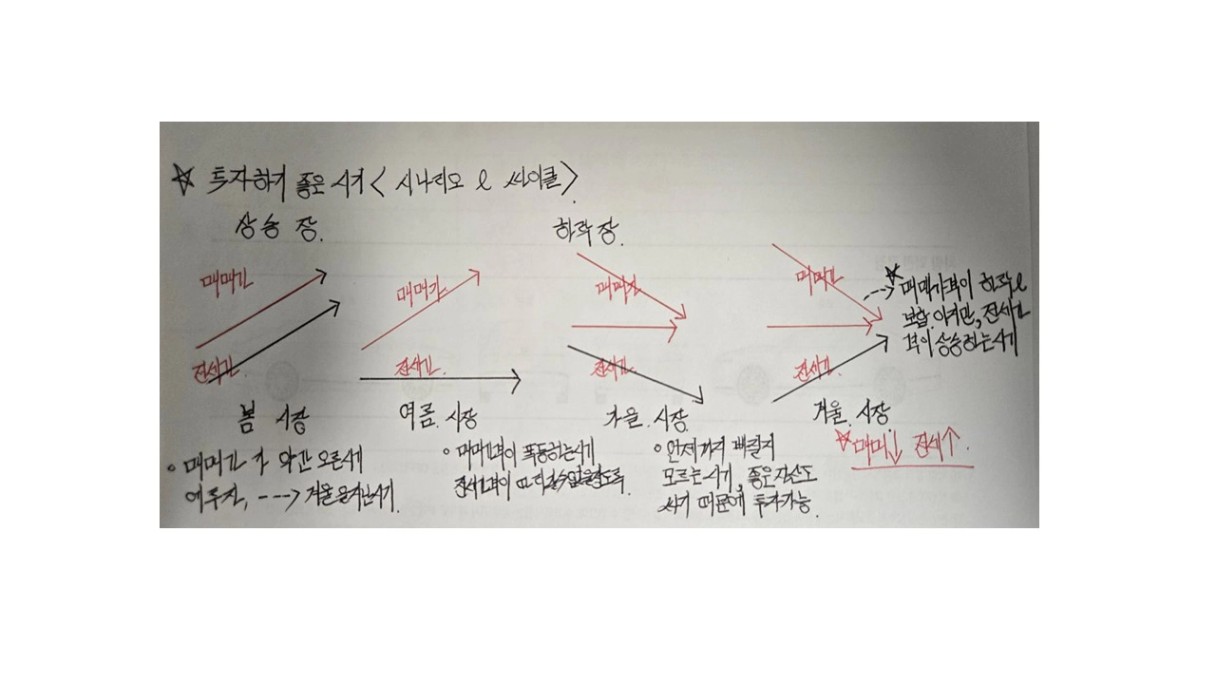 ☆ 투자하기 좋은 시기 < 시나리오 & 싸이클 >.
상승 장.
하락 장.
매매가
매매가
매매가
매매가
---> ☆ 매매가격이 하락 &
보합 이지만, 전세가
격이 상승하는 시기
전세가
전세가.
전세가
전세가.
봄 시장
여름. 시장
가을. 시장.
겨울. 시장.
☆ 매매↓ 전세↑.
∘ 매매가가 약간 오른 시기
---> 겨울을 지난 시기.
∘ 매매가격이 폭등하는 시기
전세가격이 따라갈 수 없을 정도로.
∘ 언제까지 빠질지
모르는 시기, 좋은 자산도
싸기 때문에 투자가능.